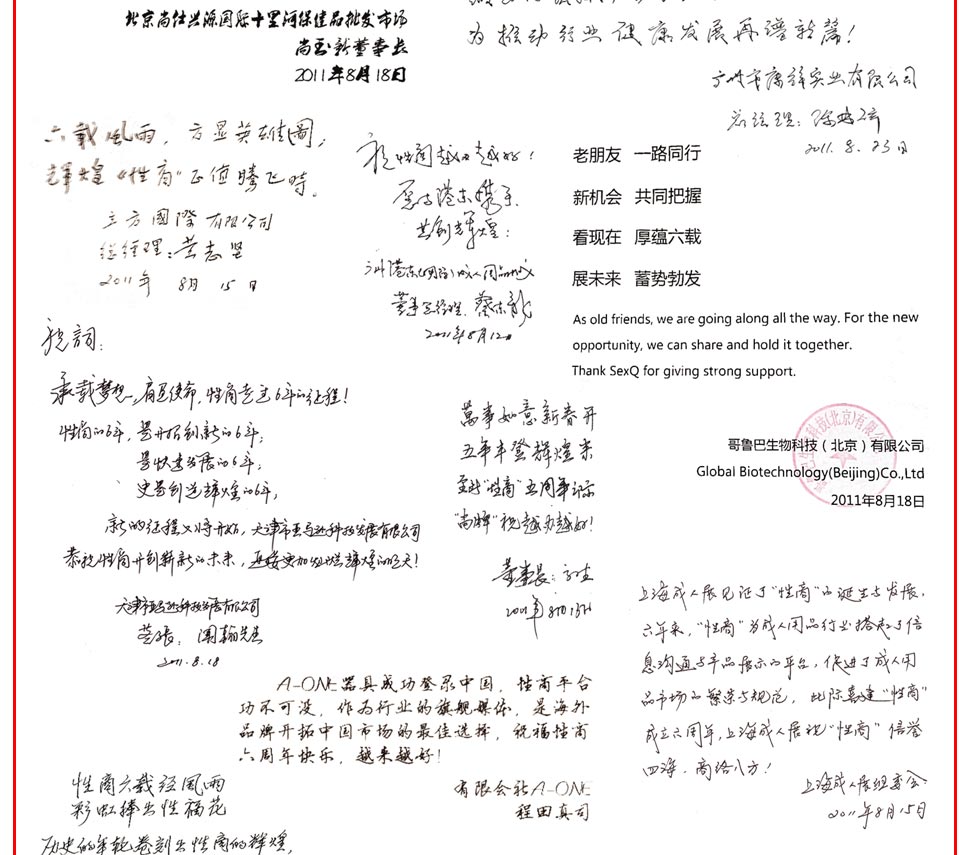 北京尚仕兴源国际十里河保健品批发市场
2011年8月18日
为推动行业健康发展再谱新篇！
广州市康祥实业有限公司
总经理：
2011.8.23日
六载风雨，方显英雄本色；
辉煌《性商》正值腾飞时。
立方國際有限公司
總經理：黄志坚
2011年 8月 15日
祝性商越办越好！
共创辉煌：
董事总经理：蔡东龙
2011年8月12日
老朋友 一路同行
新机会 共同把握
看现在 厚蕴六载
展未来 蓄势勃发
As old friends, we are going along all the way. For the new
opportunity, we can share and hold it together.
Thank SexQ for giving strong support.
哥鲁巴生物科技（北京）有限公司
Global Biotechnology(Beijing)Co.,Ltd
2011年8月18日
祝詞：
承载梦想，肩负使命，性商走过6年的征程！
性商的6年，是开拓创新的6年；
是快速发展的6年；
更是创造辉煌的6年，
恭祝性商开创新的未来，
2011.8.18
萬事如意新春开
五年丰登辉煌来
"尚牌"祝越办越好！
董事長：
2011年8月13日
A-ONE器具成功登录中国，性商平台
功不可没，作为行业的旗舰媒体，是海外
品牌开拓中国市场的最佳选择，祝福性商
六周年快乐，越来越好！
有限会社A-ONE
程田真司
上海成人展见证了"性商"的诞生与发展。
六年来，"性商"为成人用品行业搭起了信
息沟通与产品展示的平台，促进了成人用
品市场的繁荣与规范，此际喜逢"性商"
成立六周年，上海成人展祝"性商"信誉
四海，商络八方！
上海成人展组委会
2011年8月15日
性商六载经风雨
彩虹捧出性福花
历史的年轮卷刻出性商的辉煌，